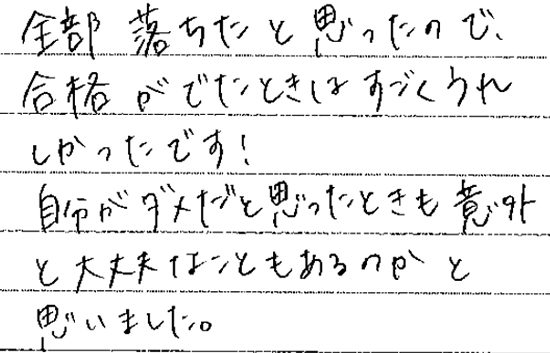 全部落ちたと思ったので、
合格がでたときはすごくうれ
しかったです！
自分がダメだと思ったときも意外
と大丈夫なこともあるのかと
思いました。